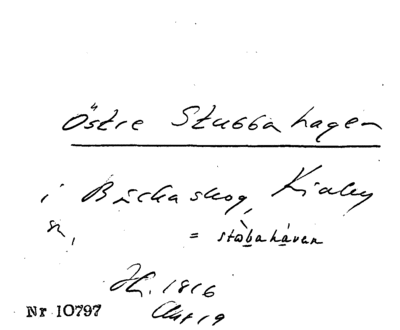 Östre Stubbahagen
i Bäckaskog, Kiaby
sn, = stòbahávan
H. 1816
Nr 10797